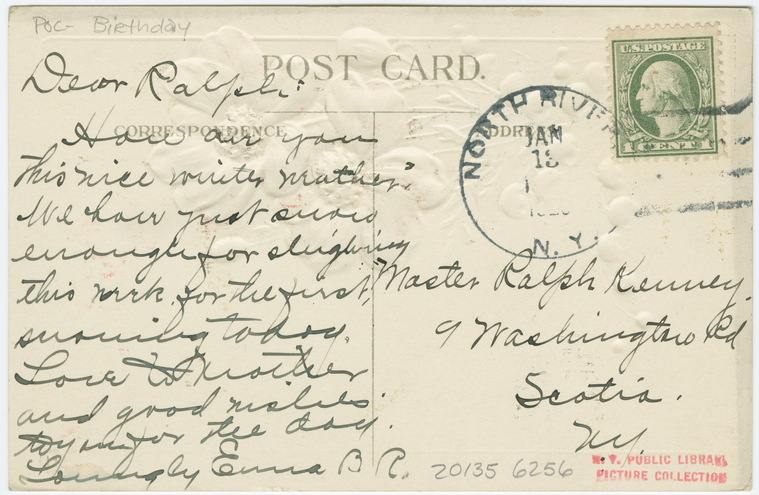 Poc- Birthday
POST CARD.
CORRESPONDENCE
ADDRESS
U.S. POSTAGE
1 CENT 1
NORTH RIVER
JAN
13
N.Y.
Dear Ralph:
How are you
this nice winter weather?
We have just snow
enough for sleighing
this week, for the first,
snowing today.
Love to Mother
and good wishes
to you for the day.
Lovingly Emma B R.
Master Ralph Kenney.
9 Washington Rd
Scotia.
N.Y.
20135 6256
N.Y. PUBLIC LIBRARY
PICTURE COLLECTION